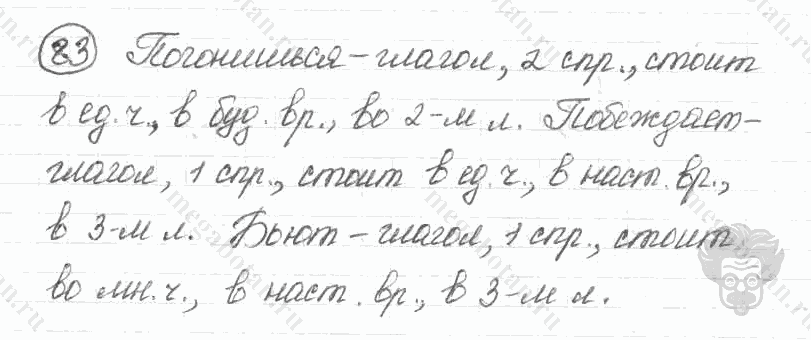 83 Погонишься – глагол, 2 спр., стоит
в ед. ч., в буд. вр., во 2-м л. Побеждает –
глагол, 1 спр., стоит в ед. ч., в наст. вр.,
в 3-м л. Бьют – глагол, 1 спр., стоит
во мн. ч., в наст. вр., в 3-м л.
megabotan.ru